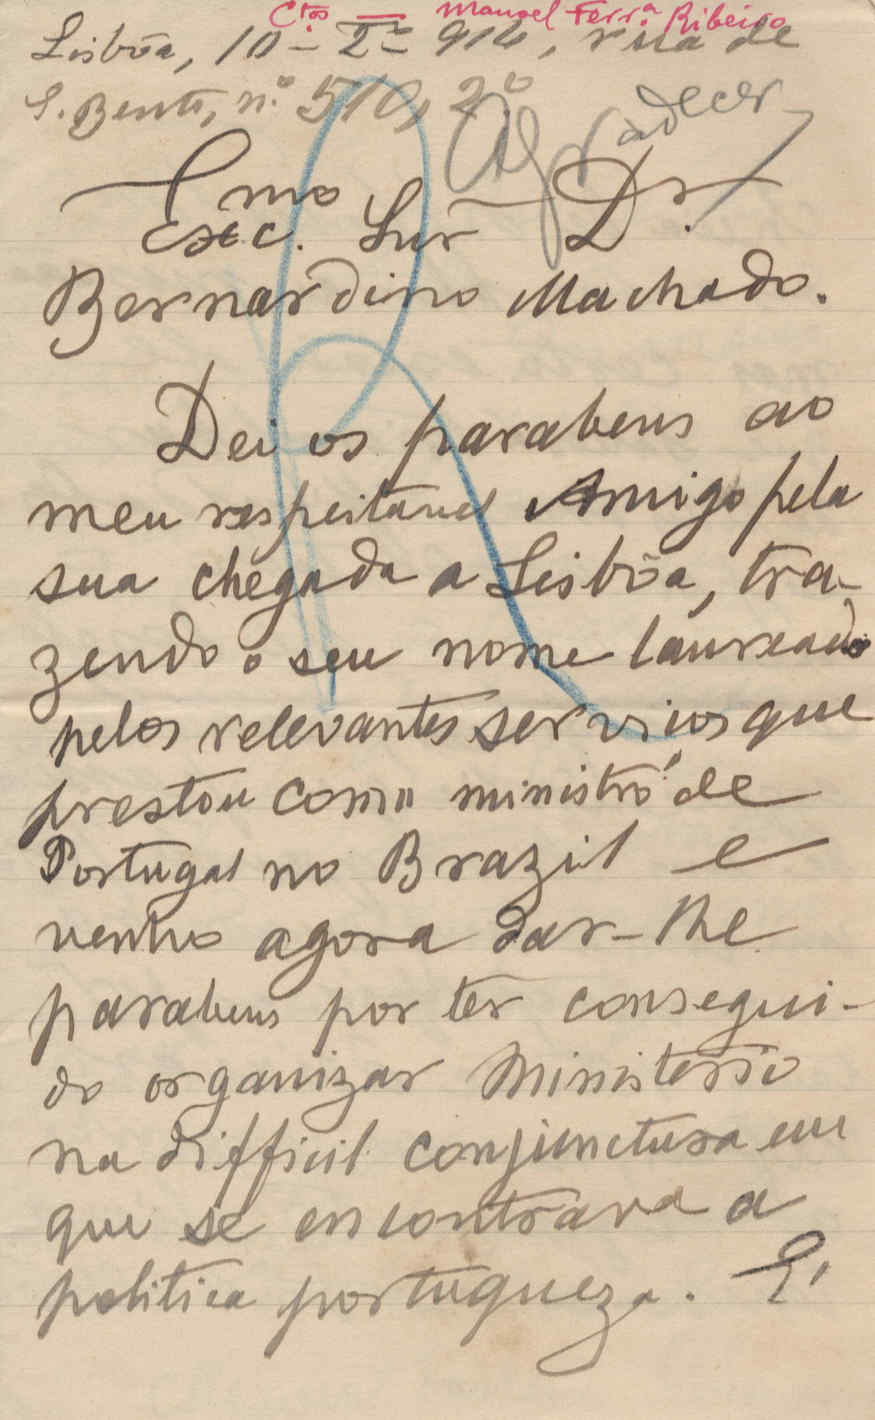 Ctos — Manoel Ferra. Ribeiro
Lisbôa, 10-2º-914, rua de
S. Bento, n.º 510, 2º
Agradecer
Exc.mo Snr Dr.
Bernardino Machado.
Dei os parabens ao
meu respeitavel Amigo pela
sua chegada a Lisbôa, tra-
zendo o seu nome laureado
pelos relevantes serviços que
prestou como ministro de
Portugal no Brazil e
venho agora dar-lhe
parabens por ter consegui-
do organizar Ministerio
na difficil conjunctura em
que se encontrava a
politica portugueza. E'
R